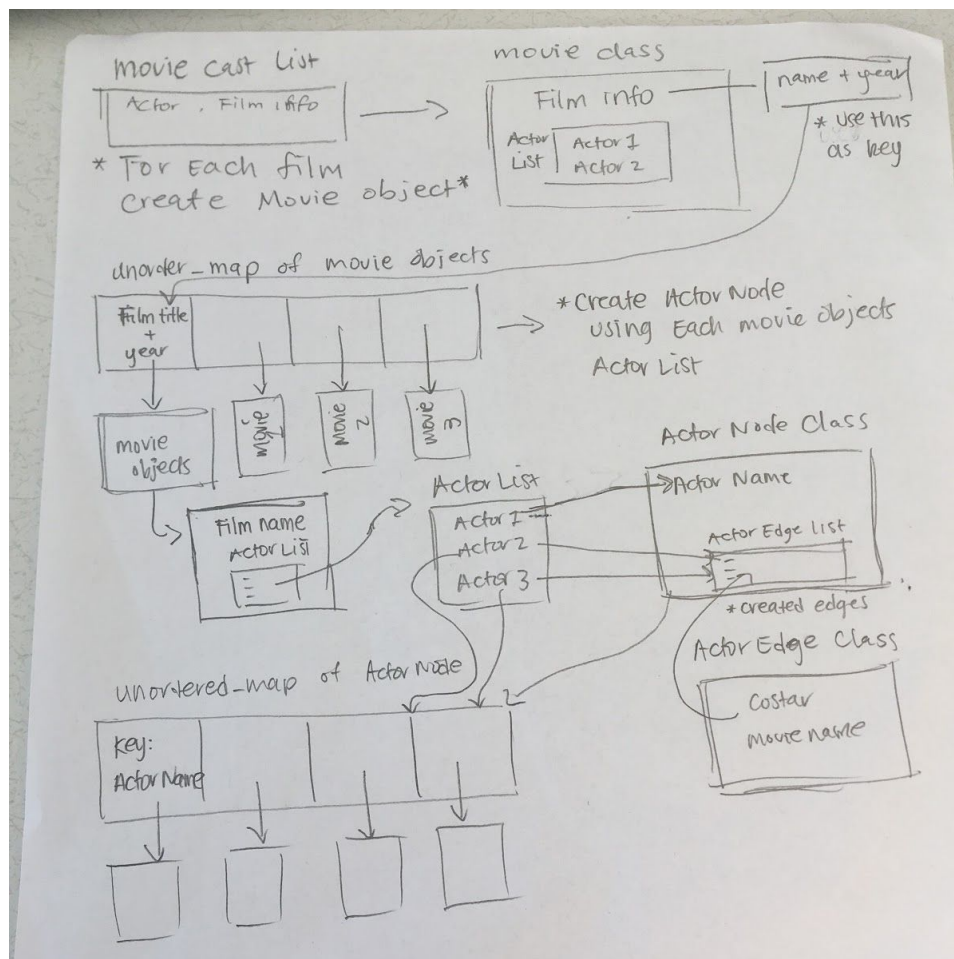 movie cast List
Actor . Film info
* For Each film
create Movie object*
movie class
Film info
Actor List
Actor 1
Actor 2
name + year
* use this
as key
unorder_map of movie objects
Film title
+
year
movie
objects
movie 1
movie 2
movie 3
*Create Actor Node
using Each movie objects
Actor List
Film name
Actor List
Actor List
Actor 1
Actor 2
Actor 3
Actor Node Class
Actor Name
Actor Edge list
*created edges
Actor Edge Class
Costar
movie name
unortered_map of Actor Node
key:
Actor Name